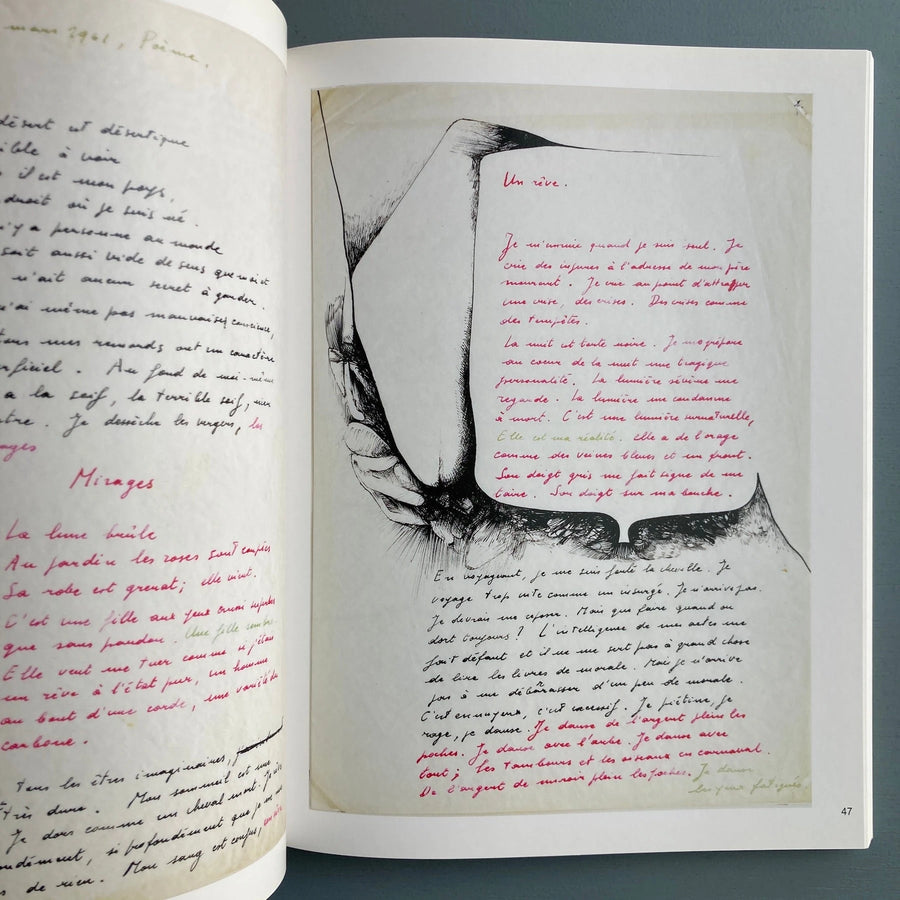 mars 1961, Poème.
désert est désertique
ible à voir
il est mon pays,
droit où je suis né.
n'y a personne au monde
soit aussi vide de sens que moi et
n'ait aucun secret à garder.
n'ai même pas mauvaise conscience,
dans mes remords ont un caractère
erficiel. Au fond de moi-même
a la soif, la terrible soif,
tre. Je dessèche les vergers, les
ages
Mirages
La lune brûle
Au jardin les roses sont coupées
Sa robe est grenat; elle vient.
C'est une fille aux yeux aussi superbes
que sans pardon. Une fille sombre.
Elle veut me tuer comme si j'étais
un rêve à l'état pur, un homme
au bout d'une corde, une variété du
carbone.
tous les êtres imaginaires,
très dure. Mon sommeil est une
Je dors comme un cheval mort! Je
ondément, si profondément que je
de rien. Mon sang est confus,
Un rêve.
Je m'ennuie quand je suis seul. Je
crie des injures à l'adresse de mon père
mourant. Je crie au point d'attrapper
une crise, des crises. Des crises comme
des tempêtes.
La nuit est toute noire. Je me prépare
au coeur de la nuit une tragique
personalité. La lumière sévème me
regarde. La lumière me condamne
à mort. C'est une lumière surnaturelle,
Elle est ma réalité. Elle a de l'orage
comme des veines bleues et un front.
Son doigt gris me fait signe de me
taire. Son doigt sur ma bouche.
En voyageant, je me suis foulé la cheville. Je
voyage trop vite comme un insurgé. Je n'arrive pas.
Je devrais me reposer. Mais que faire quand on
dort toujours? L'intelligence de mes actes me
fait défaut et il ne me sert pas à grand chose
de lire les livres de morale. Mais je n'arrive
pas à me débarasser d'un peu de morale.
C'est ennuyeux, c'est excessif. Je piétine, je
rage, je danse. Je danse de l'argent plein les
poches. Je danse avec l'aube. Je danse avec
tout; les tambours et les oiseaux en carnaval.
De l'argent de miroir plein les poches. Je danse
les yeux fatigués.
47